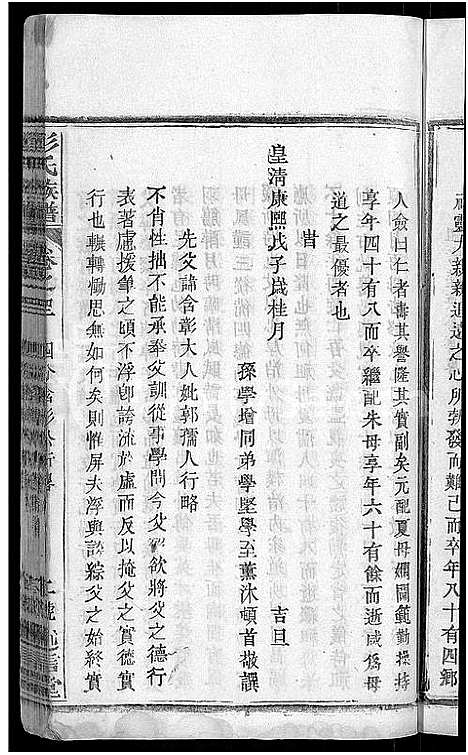 神靈大新新進道之心所勃發而難已而卒年八十有四鄉
人僉曰仁者壽其譽隆其實副矣元配夏母嫻閫範勤操持
享年四十有八而卒繼配朱母享年六十有餘而逝咸爲母
道之最優者也
昔
皇清康熙戊子歲桂月 吉旦
孫學增同弟學堅學至薰沐頓首敬譔
先父諱含彰大人妣郭孺人行略
不肖性拙不能承奉父訓從事學問今父歿欲將父之德行
表著慮援筆之頃不浮卽誇流於虛而反以掩父之實德實
行也輾轉慟思無如何矣則惟屏夫浮與誇綜父之始終實
彭氏族譜 卷之